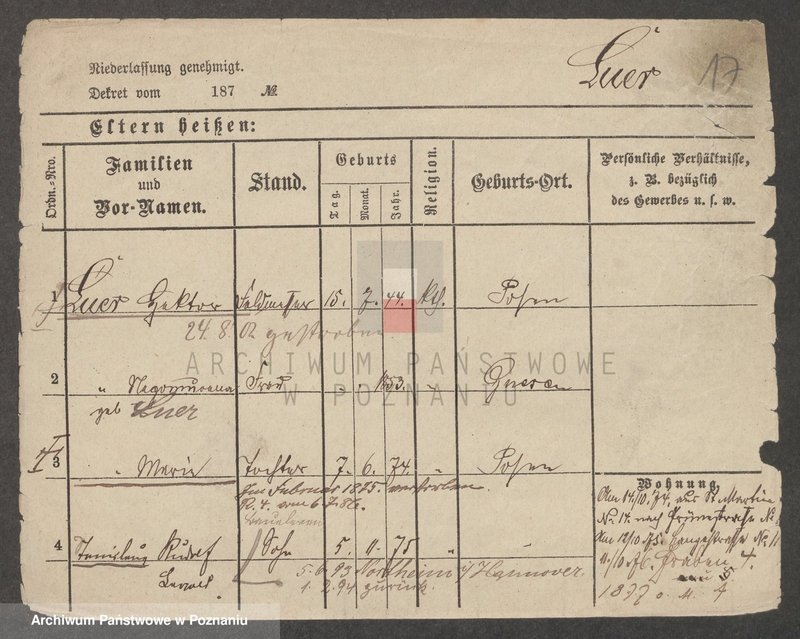 Niederlassung genehmigt.
Luer 17
Dekret vom 187 №
Eltern heißen:
Ordn.-Nro.
Familien
und
Vor-Namen.
Stand.
Geburts
Tag.
Monat.
Jahr.
Religion.
Geburts-Ort.
Persönliche Verhältnisse,
z. B. bezüglich
des Gewerbes u. s. w.
1 Luer Hektor Feldmesser 15. 7. 44. kth. Posen
24. 8. 02 gestorben
ARCHIWUM PAŃSTWOWE
W POZNANIU
2 " Frau 1853. " Gnesen
geb Luer
3 " Marie Tochter 7. 6. 74. " Posen
Im Februar 1875 verstorben.
R. 4. vom 6. 7. 86.
Wohnung
Am 14/10. 74, aus St. Martin
No. 14. nach Grünestrasse No.
Am 12/10 75. Langestrasse No. 11
11/10 76. Graben 4.
1877 o. M. 4
4 Stanislaus Rudolf Sohn 5 11. 75 " "
5. 6. 93 Northeim i/ Hannover.
1. 2. 94 zurück.
Archiwum Państwowe w Poznaniu